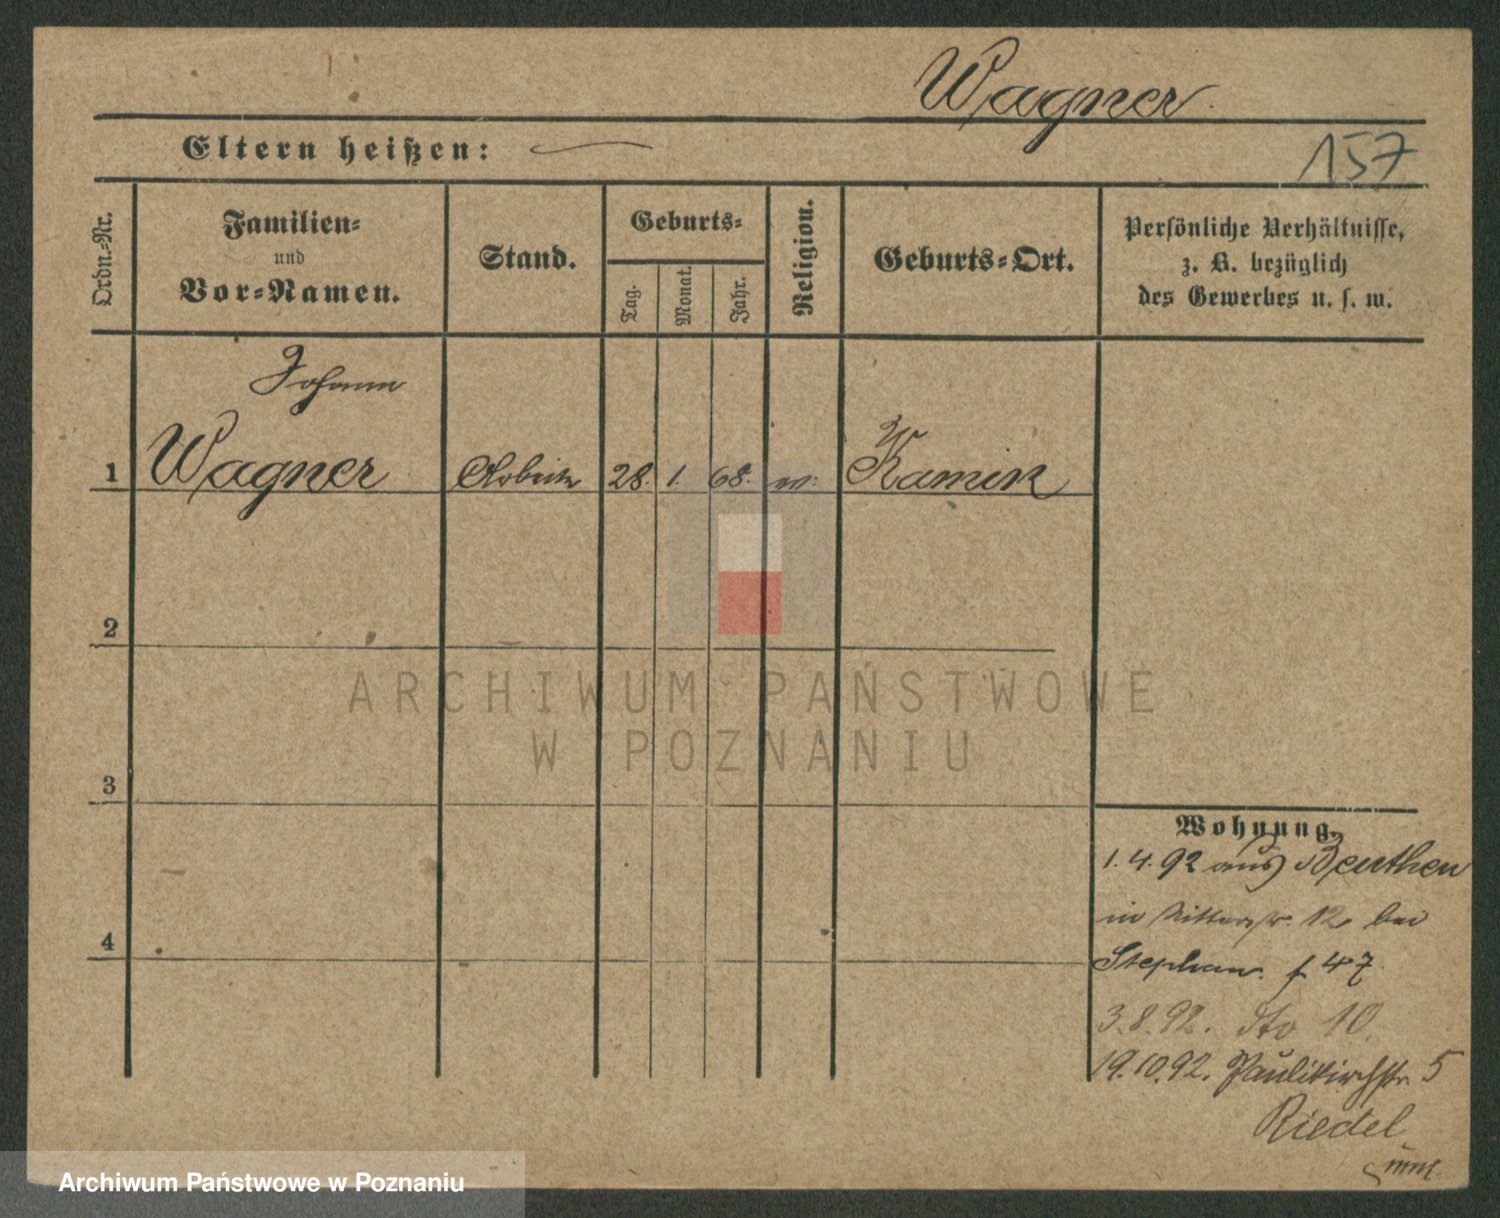 Wagner
Eltern heißen:
157
Ordn.-Nr.
Familien-
und
Vor-Namen.
Stand.
Geburts-
Tag.
Monat.
Jahr.
Religion.
Geburts-Ort.
Persönliche Verhältnisse,
z. B. bezüglich
des Gewerbes u. s. w.
Johann
1 Wagner Arbeiter 28. 1. 68. Kamin
2
3
4
ARCHIWUM PAŃSTWOWE
W POZNANIU
Wohnung.
1. 4. 92 aus Beuthen
in Ritterstr. 12 bei
Stephan. f 47
3. 8. 92. dto 10
19. 10. 92. Paulikirchstr. 5
Riedel
Archiwum Państwowe w Poznaniu